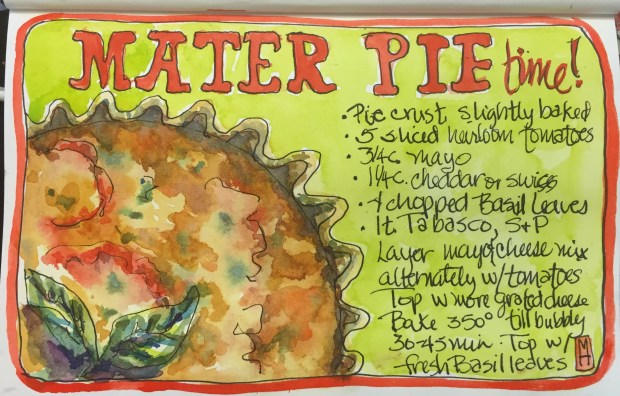 MATER PIE time!
• Pie crust, slightly baked
• 5 sliced heirloom tomatoes
• 3/4c. mayo
• 1 1/4c. cheddar or swiss
• 4 chopped Basil Leaves
• 1t Tabasco, S+P
Layer mayo/cheese mix
alternately w/tomatoes
Top w more grated cheese
Bake 350° till bubbly
30-45 min. Top w/
fresh Basil leaves
MH